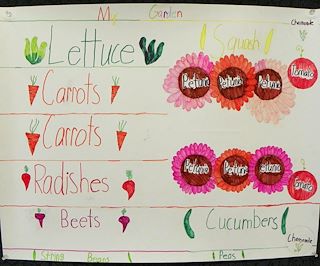 My Garden
Chamomile
Lettuce
Squash
Petunia Petunia Petunia
Tomato
Carrots
Carrots
Petunia Petunia Petunia
Radishes
Tomato
Beets
Cucumbers
Chamomile
String Beans
Peas